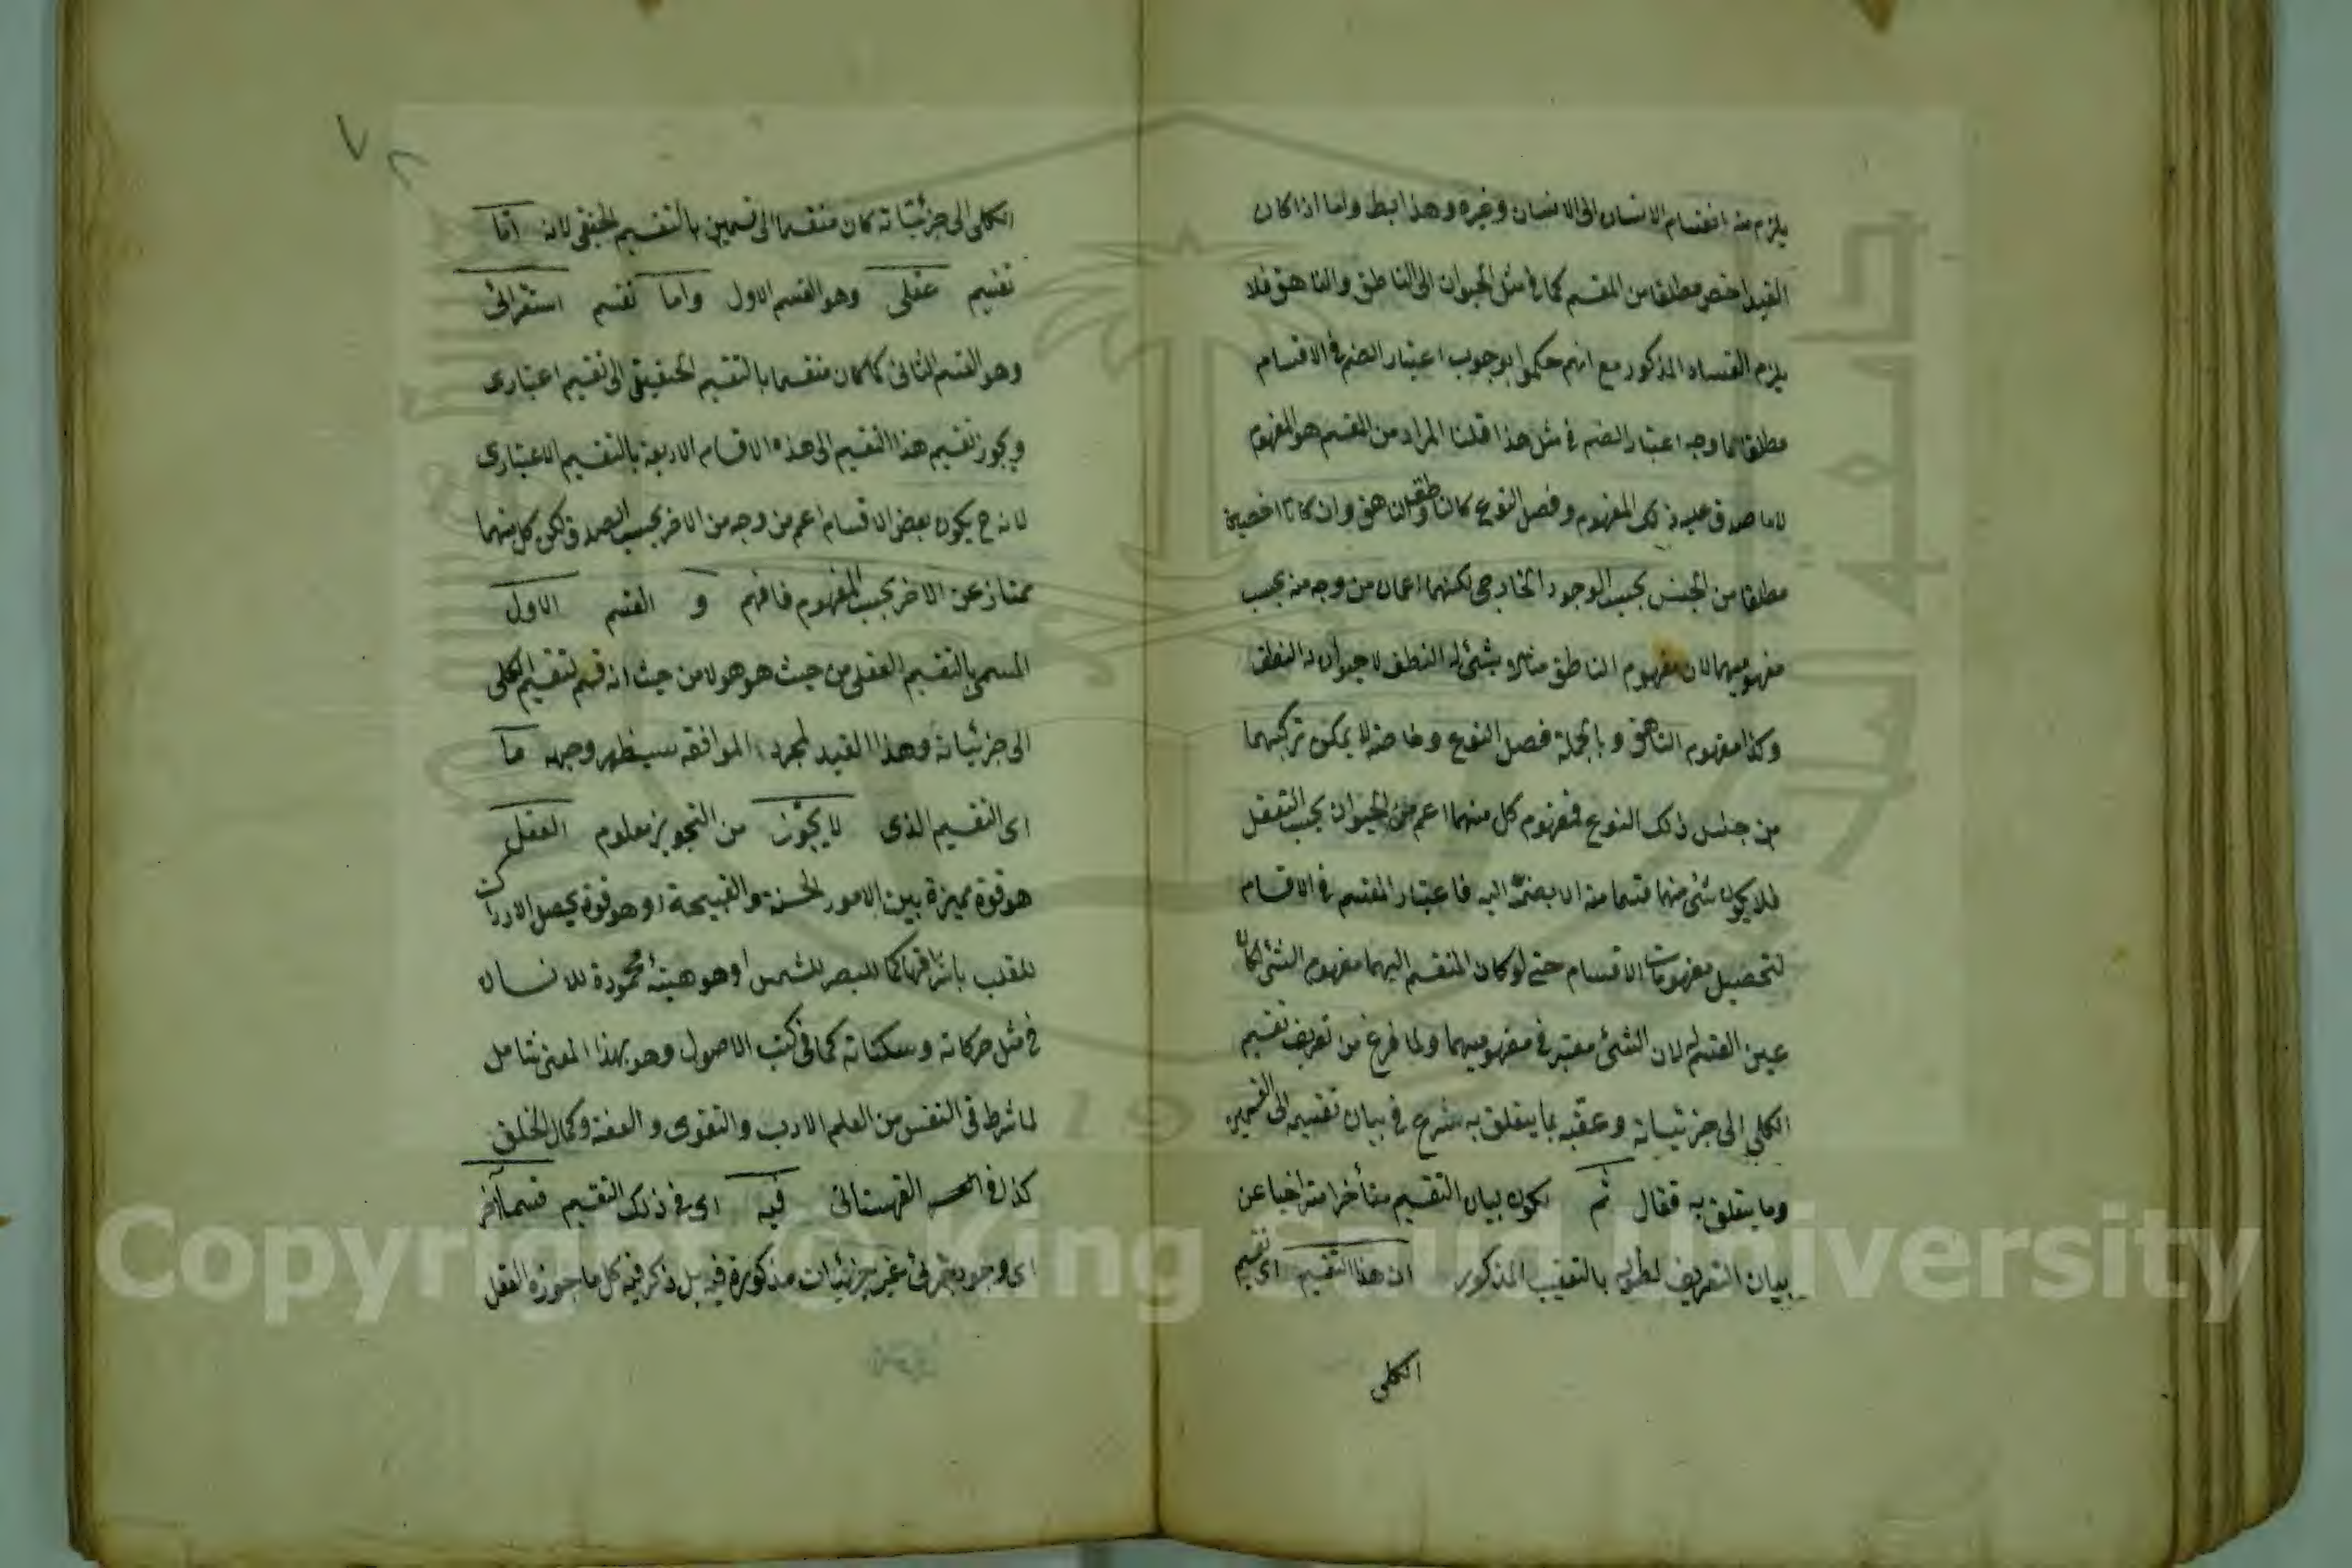 يلزم منه انقسام الانسان الى الانسان وغيره وهذا بط واما اذا كان
القيد اخص مطلقا من المقسم كما في مثل الحيوان الى الناطق والناهق فلا
يلزم الفساد المذكور مع انهم حكموا بوجوب اعتبار الضم في الاقسام
مطلقا فما وجه اعتبار الضم في مثل هذا قلنا المراد من المقسم هو المفهوم
لا ما صدق عليه ذلك المفهوم وفصل النوع كالناطق والناهق وان كانا اخصين
مطلقا من الجنس بحسب الوجود الخارجي لكنهما اعمان من وجه منه بحسب
مفهوميهما لان مفهوم الناطق شيء له النطق لا حيوان له النطق
وكذا مفهوم الناهق وبالجملة فصل النوع وخاصته لا يمكن تركبهما
من جنس ذلك النوع فمفهوم كل منهما اعم من الحيوان بحسب التعقل
فلا يكون شئ منهما قسما منه الا بضمه اليه فاعتبار المقسم في الاقسام
لتحصيل مفهومات الاقسام حتى لو كان المنقسم اليهما مفهوم الشئ لكان
عين القسم لان الشئ معتبر في مفهوميهما ولما فرغ من تعريف تقسيم
الكلي الى جزئياته وعقبه بما يتعلق به شرع في بيان تقسيمه الى القسمين
وما يتعلق به فقال ثم لكون بيان التقسيم متأخرا متراخيا عن
بيان التعريف لطوله بالتعقيب المذكور ان هذا التقسيم اى تقسيم
الكلى
الكلى الى جزئياته كان منقسما الى قسمين بالتقسيم الحقيقى لانه اما
تقسيم عقلى وهو القسم الاول واما تقسيم استقرائى
وهو القسم الثانى كما كان منقسما بالتقسيم الحقيقى الى تقسيم اعتبارى
ويجوز تقسيم هذا التقسيم الى هذه الاقسام الاربعة بالتقسيم الاعتبارى
لانه ح يكون بعض الاقسام اعم من وجه من الاخر بحسب الصدق لكن كل منهما
ممتاز عن الاخر بحسب المفهوم فافهم و القسم الاول
المسمى بالتقسيم العقلى من حيث هو هو لا من حيث انه قسم لتقسيم الكلى
الى جزئياته وهذا القيد لمجرد الموافقة سيظهر وجهه ما
اى التقسيم الذى لا يجوز من التجويز معلوم العقل
هو قوة مميزة بين الامور الحسنة والقبيحة او هو قوة يحصل الادراك
للقلب باشراقها كما للبصر للشمس او هو هيئة محمودة للانسان
في مثل حركاته وسكناته كما فى كتب الاصول وهو بهذا المعنى شامل
لما شرط فى النفس من العلم الادب والتقوى والعفة وكمال الخلق
كذا فى القهستانى فيه اى فى ذلك التقسيم قسما آخر
اى وجود جزئى غير جزئيات مذكورة فيه بل ذكر فيه كل ما جوزه العقل
Copyright © King Saud University